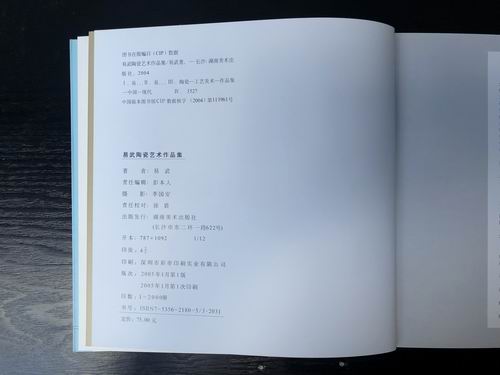 图书在版编目(CIP)数据
易武陶瓷艺术作品集/易武著.—长沙:湖南美术出
版社, 2004
Ⅰ.易... Ⅱ.易... Ⅲ.陶瓷—工艺美术—作品集
—中国—现代 Ⅳ.J527
中国版本图书馆CIP数据核字(2004)第111961号
易武陶瓷艺术作品集
著 者: 易 武
责任编辑: 彭本人
摄 影: 李国安
责任校对: 徐 盾
出版发行: 湖南美术出版社
(长沙市东二环一段622号)
开本: 787×1092 1/12
印张:
印刷: 深圳市彩帝印刷实业有限公司
版次: 2005年1月第1版
2005年1月第1次印刷
印数: 1-2000册
书号: ISBN7-5356-2180-5/J·2031
定价: 75.00元